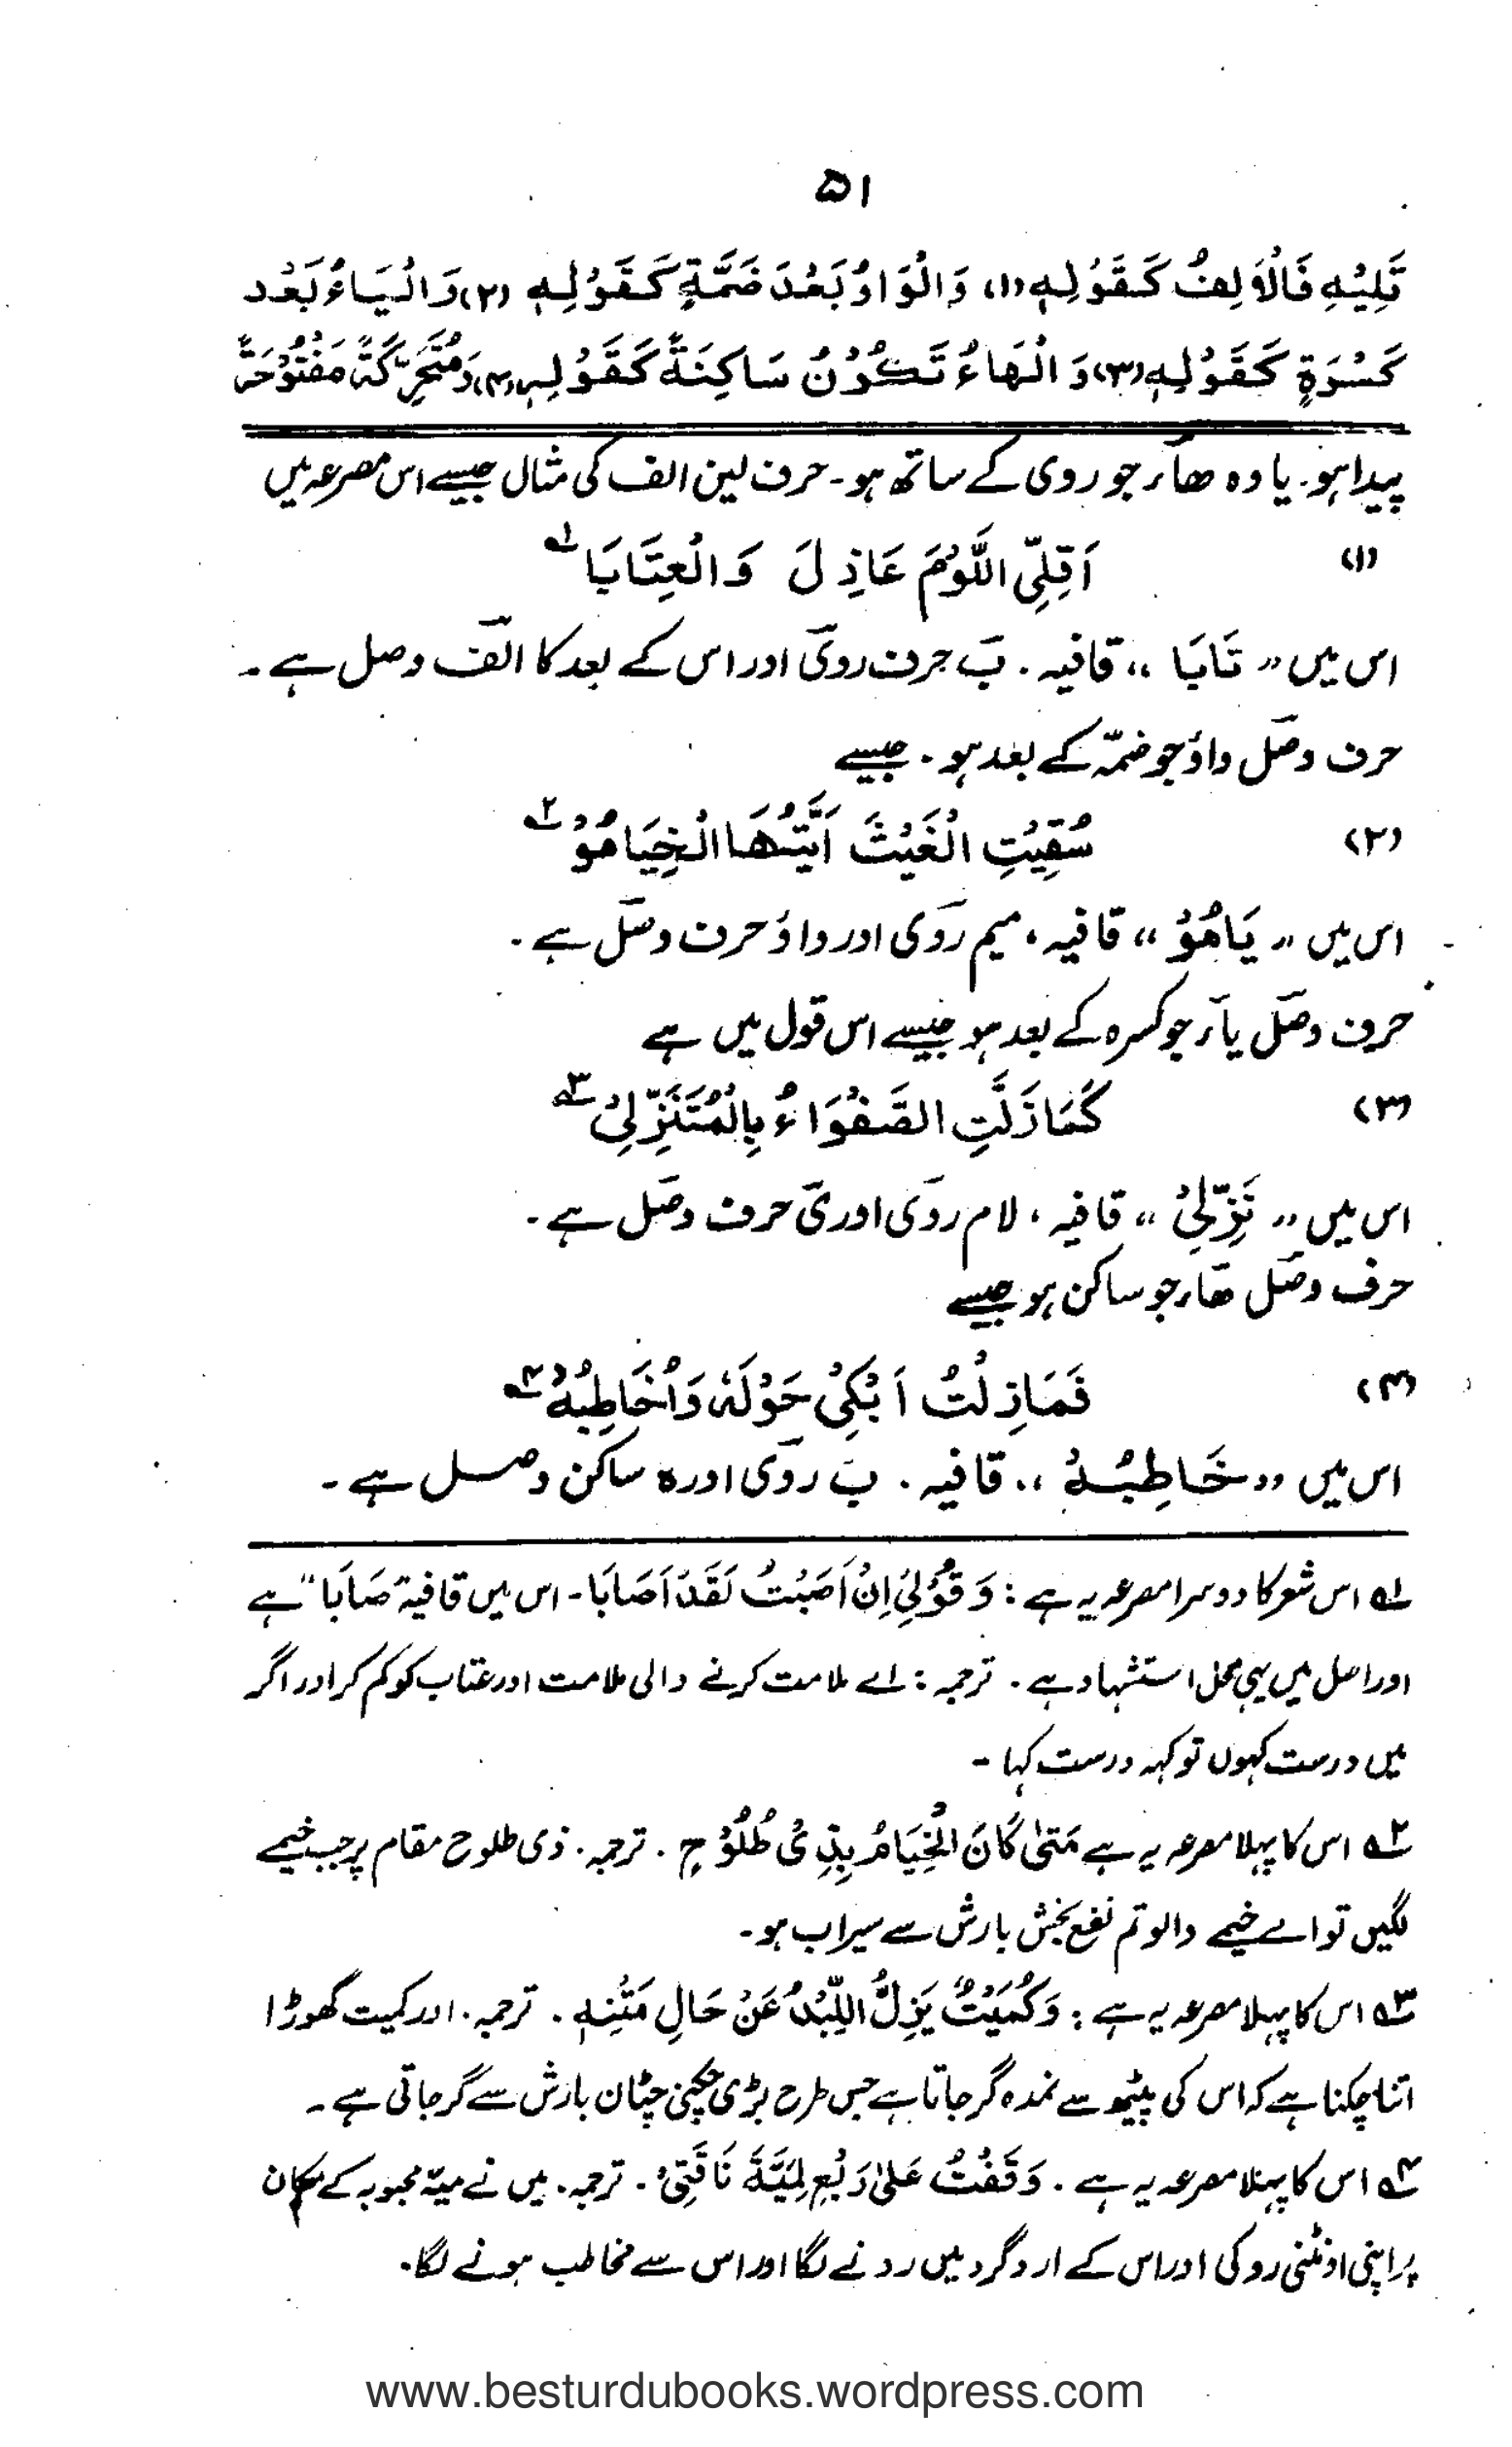 ۵۱
تَلِیْهِ فَالْاَلِفُ کَقَوْلِهٖ (۱) وَالْوَاوُ بَعْدَ ضَمَّةٍ کَقَوْلِهٖ (۲) وَالْیَاءُ بَعْد
کَسْرَةٍ کَقَوْلِهٖ (۳) وَالْهَاءُ تَکُوْنُ سَاکِنَةً کَقَوْلِهٖ (۴) وَمُتَحَرِّکَةً مَفْتُوْحَةً
پیدا ہو۔ یا وہ ھاء جو روی کے ساتھ ہو۔ حرف لین الف کی مثال جیسے اس مصرعہ میں
(۱) اَقِلِّی اللَّوْمَ عَاذِلَ وَالْعِتَابَا ۱ه
اس میں ” تَابَا “ قافیہ۔ بَ حرف روی اور اس کے بعد کا الف وصل ہے۔
حرف وصل واؤ جو ضمّہ کے بعد ہو۔ جیسے
(۲) سُقِیْتِ الْغَیْثَ اَیَّتُهَا الْخِیَامُوْ ۲ه
اس میں ” یَامُوْ “ قافیہ، میم روی اور واؤ حرف وصل ہے۔
حرف وصل یاء جو کسرہ کے بعد ہو جیسے اس قول میں ہے
(۳) کَمَا زَلَّتِ الصَّفْوَاءُ بِالْمُتَنَزِّلِیْ ۳ه
اس میں ” نَزِّلِیْ “ قافیہ، لام روی اور ی حرف وصل ہے۔
حرف وصل ھاء جو ساکن ہو جیسے
(۴) فَمَازِلْتُ اَبْکِیْ حَوْلَهٗ وَاُخَاطِبُهْ ۴ه
اس میں ” خَاطِبُهْ “ قافیہ۔ بَ روی اور ہ ساکن وصل ہے۔
۱ه اس شعر کا دوسرا مصرعہ یہ ہے : وَقُوْلِیْ اِنْ اَصَبْتُ لَقَدْ اَصَابَا۔ اس میں قافیہ ”صَابَا“ ہے
اور اصل میں یہی محل استشہاد ہے۔ ترجمہ : اے ملامت کرنے والی ملامت اور عتاب کو کم کر اور اگر
میں درست کہوں تو کہہ درست کہا۔
۲ه اس کا پہلا مصرعہ یہ ہے مَتٰی کَانَ الْخِیَامُ بِذِیْ طُلُوْحٍ۔ ترجمہ۔ ذی طلوح مقام پر جب خیمے
لگیں تو اے خیمے والو تم نفع بخش بارش سے سیراب ہو۔
۳ه اس کا پہلا مصرعہ یہ ہے : وَکُمَیْتٌ یَزِلُّ اللِّبْدُ عَنْ حَالِ مَتْنِهٖ۔ ترجمہ۔ اور کمیت گھوڑا
اتنا چکنا ہے کہ اس کی پیٹھ سے نمدہ گر جاتا ہے جس طرح بڑی چکنی چٹان بارش سے گر جاتی ہے۔
۴ه اس کا پہلا مصرعہ یہ ہے۔ وَقَفْتُ عَلٰی رَبْعٍ لِمَیَّةَ نَاقَتِیْ۔ ترجمہ۔ میں نے میّہ محبوبہ کے مکان
پر اپنی اونٹنی روکی اور اس کے ارد گرد میں رونے لگا اور اس سے مخاطب ہونے لگا۔
www.besturdubooks.wordpress.com